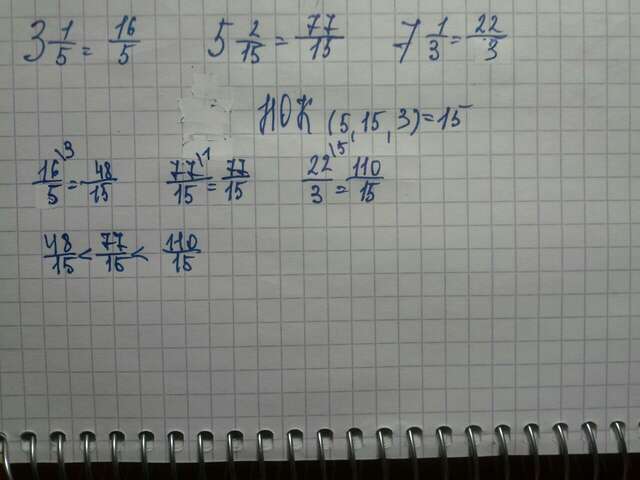 3 1/5 = 16/5 5 2/15 = 77/15 7 1/3 = 22/3
НОК (5, 15, 3) = 15
16\3/5 = 48/15 77\1/15 = 77/15 22\5/3 = 110/15
48/15 < 77/15 < 110/15